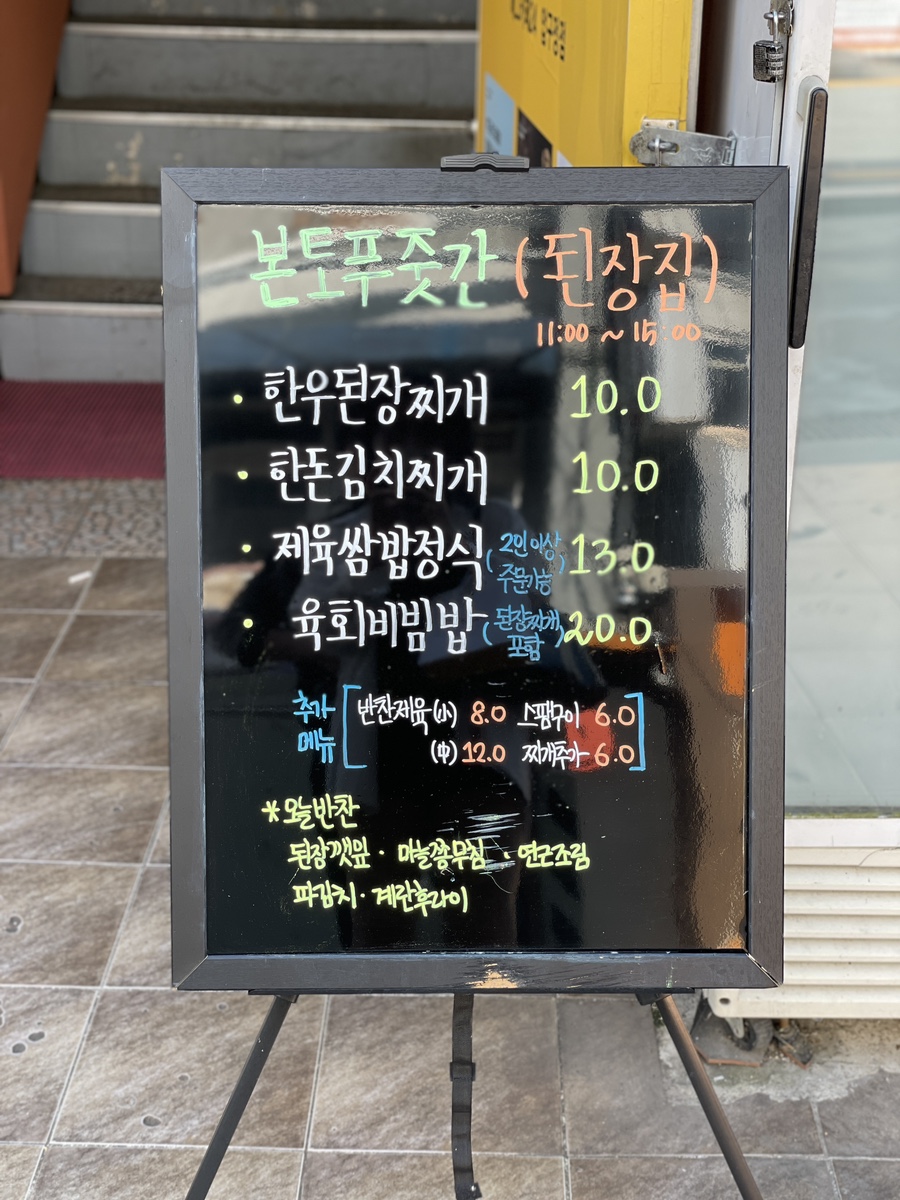 본토푸줏간 (된장집)
11:00 ~ 15:00
• 한우된장찌개 10.0
• 한돈김치찌개 10.0
• 제육쌈밥정식 (2인 이상 주문가능) 13.0
• 육회비빔밥 (된장찌개 포함) 20.0
추가 메뉴 [반찬제육(小) 8.0 스팸구이 6.0
(中) 12.0 찌개추가 6.0]
*오늘반찬
된장깻잎 · 마늘쫑무침 · 연근조림
파김치 · 계란후라이